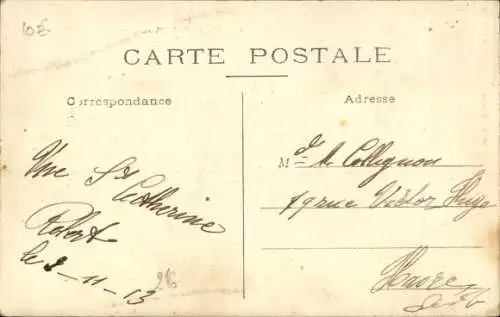 10€
CARTE POSTALE
Correspondance
Une Ste Catherine
Robert
le 2-11-13
26
Adresse
Md M. Collignon
79 rue Victor Hugo
Havre